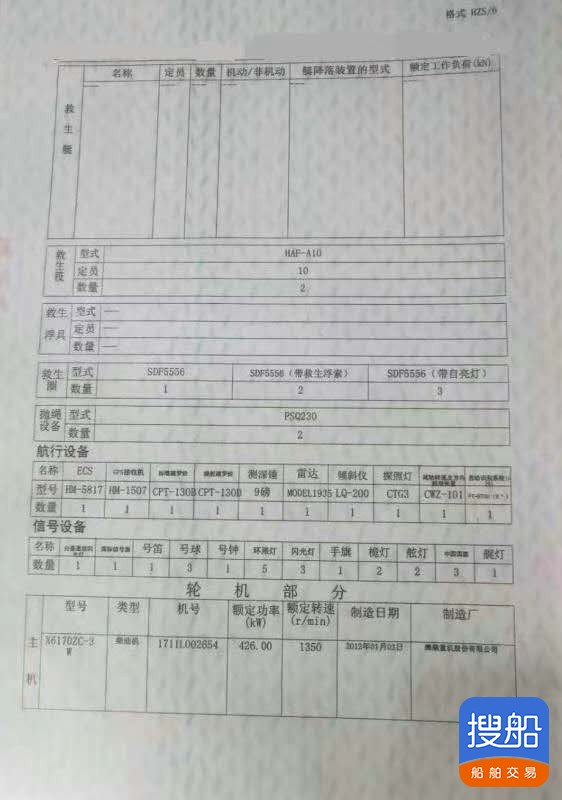 格式 HZS/0
名称 定员 数量 机动/非机动 艇降落装置的型式 额定工作负荷(kN)
救生艇 — — — — — —
救生筏 型式 HAF-A10
定员 10
数量 2
救生浮具 型式 —
定员 —
数量 —
救生圈 型式 SDF5556 SDF5556(带救生浮索) SDF5556(带自亮灯)
数量 1 2 3
抛绳设备 型式 PSQ230
数量 2
航行设备
名称 ECS GPS接收机 标准磁罗经 操舵磁罗经 测深锤 雷达 倾斜仪 探照灯
型号 HM-5817 HM-1507 CPT-130B CPT-130B 9磅 MODEL1935 LQ-200 CTG3 CWZ-101
数量 1 1 1 1 1 1 1 1 1 1
信号设备
名称 号笛 号球 号钟 环照灯 闪光灯 手旗 桅灯 舷灯 中国国旗 艉灯
数量 1 1 1 3 1 5 3 1 2 2 3 1
轮机部分
型号 类型 机号 额定功率(kW) 额定转速(r/min) 制造日期 制造厂
主机 X6170ZC-3W 柴油机 1711L002654 426.00 1350 2012年01月03日 潍柴重机股份有限公司
搜船
船舶交易